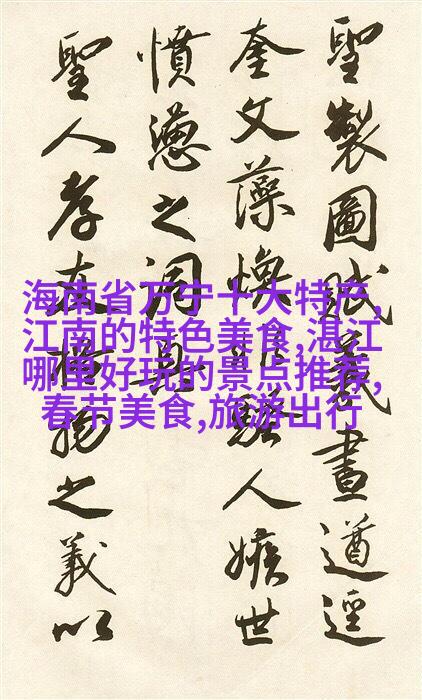 聖製圖賦義畫遒逕
奎文藻煥非騷人嫉世
憤懣之詞
聖人孝友物之義以
海南省万宁十大特产,
江南的特色美食,湛江
哪里好玩的景点推荐,
春节美食,旅游出行